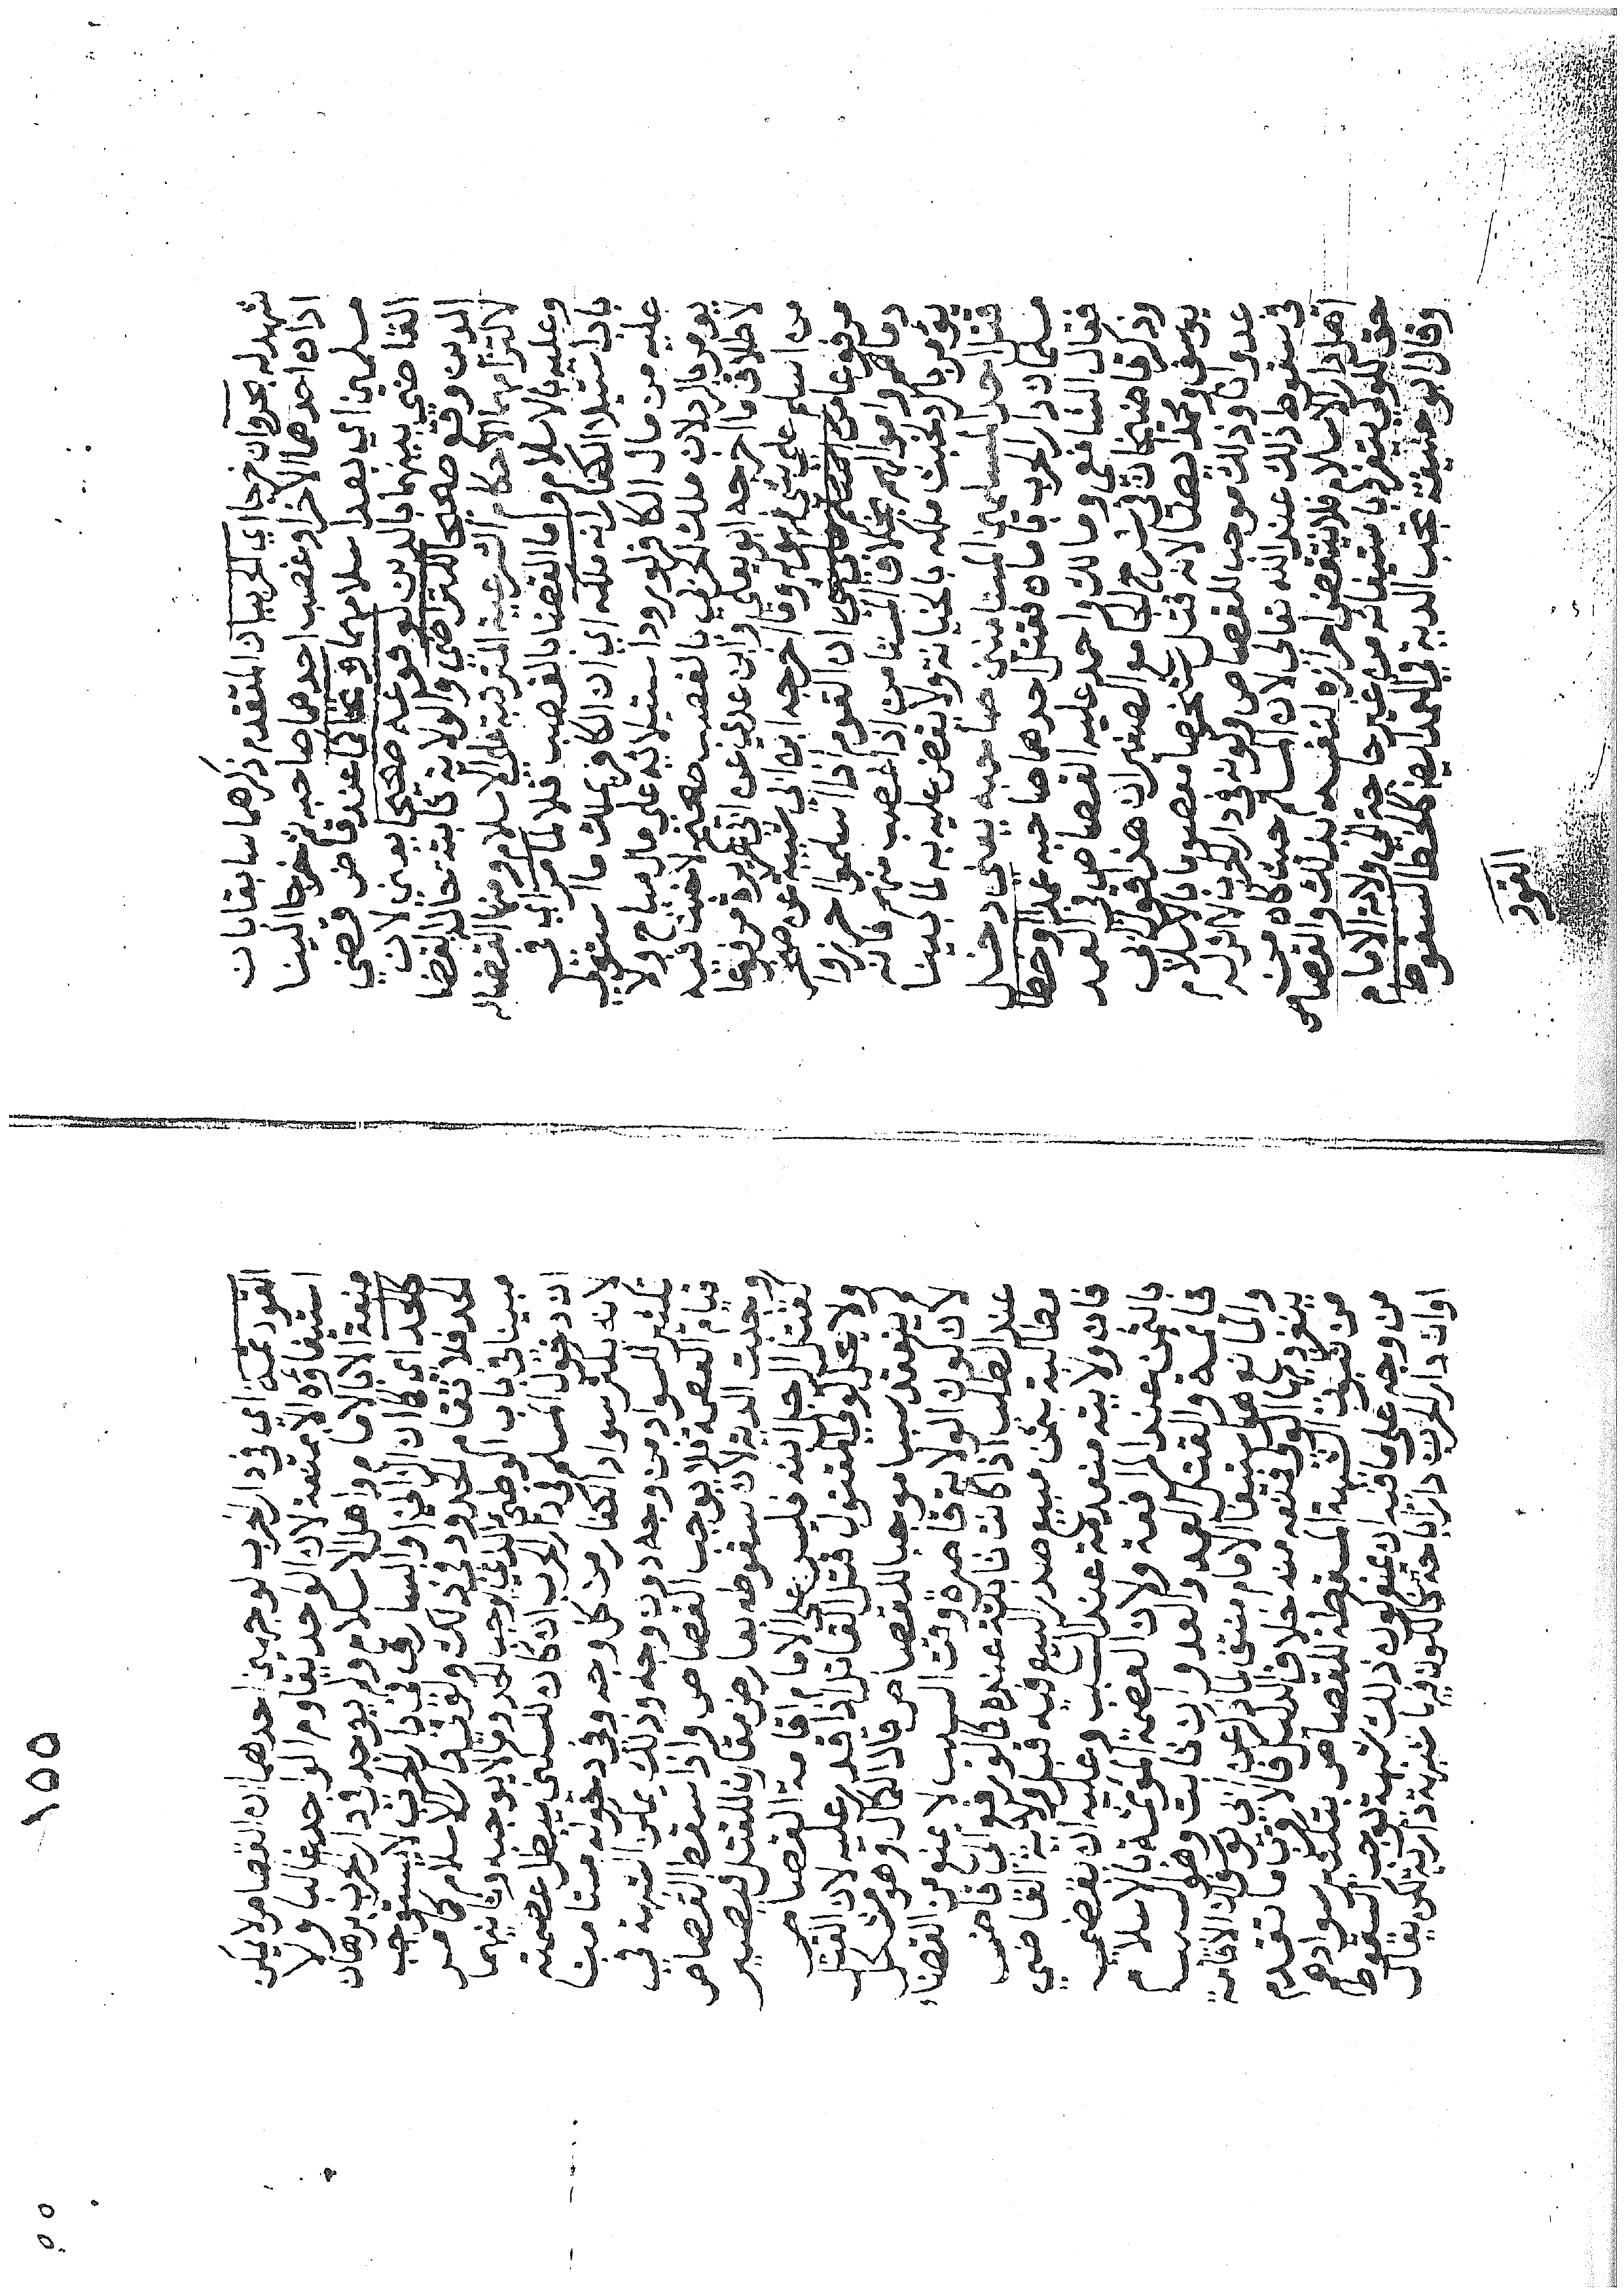 شهد له بحر وان خرجا اي الحربيان المتقدم ذكرهما سابقا بان
ادان احدهما الاخر او غصب احدهما صاحبه ثم خرجا الينا
مسلمين اي بعد اسلامهما وتحاكما عند قاض قضي
القاضي بينهما بالدين لوقوعه صحيحا يعني لان
الدين وقع صحيحا للتراضي والولاية ثابتة حال القضا
لالتزامهما الاحكام الشرعية المترتبة على الاسلام ومنها القضاله
وعليه بالاسلام واما القضا بالغصب فلا لما مر اي في
باب استيلاء الكفار انه ملكه اي ان الكافر يملك ما استولى
عليه من مال الكافر لورود استيلائه على مال مباح ولا
يومر بالرد لان ملك الحربي بالغصب صحيح لا خبث فيه
لاطلاق ما اخرجه ابو يعلى وابن عدي عن ابي هريرة مرفوعا
من اسلم على شي فهو له وما اخرجه ابن ابي شيبة عن صخر
مرفوعا ان القوم اذا اسلموا احرزوا
دماهم واموالهم بخلاف المستامن اذا غصب منهم فانه
يؤمر بالرد لخبث ملكه بالخيانة ولا يقضى عليه به لما بينا
قتل احد المسلمين المستامنين صاحبه يعني دخل
مسلمان دار الحرب بامان فقتل احدهما صاحبه عمدا او خطا
فقال الشافعي ومالك واحمد عليه القصاص في العمد
وذكر قاضيخان في شرح الجامع الصغير ان هذا قول ابي
يوسف ومحمد ايضا لانه قتل شخصا معصوما بالاسلام
عدوانا وذلك موجب للقصاص وكونه في دار الحرب لا اثر له
في سقوط ذلك عند الله تعالى لان المسلم حيث كان من
اهل دار الاسلام فلا ينتقض احرازه لنفسه بذلك والقصاص
حق للولي يتفرد باستيفائه من غير حاجة الى ولاية الامام
وقال ابو حنيفة تجب الدية في العمد ايضا كالخطا لسقوط
القود
١٥٥
القود ثمة اي في دار الحرب لوجهين احدهما ان القصاص لا يمكن
استيفاؤه الا بمنعة لان الواحد يقاوم الواحد غالبا ولا
منعة الا بالامام واهل الاسلام ولم يوجد في دار الحرب برهان
كالحد اي كما ان الزاني والسارق في دار الحرب لا يستوجب
الحد فلا تقام الحدود في ذلك ولو في دار الاسلام كما مر
مبينا في باب الوطي الذي يوجب الحد وما لا يوجبه وثانيهما
ان دخول المسلم في دار الحرب ان كان للسكنى يبطل عصمته
لانه يكثر سواد الكفار من كل وجه وفي دخوله مستامنا
تكثير للسواد من وجه دون وجه وذلك يمكن الشبهة في
قيام العصمة فلا يوجب القصاص واذا سقط القصاص
وجبت الدية لان سقوطه بعارض مقارن للقتل فيصير
كقتل الرجل ابنه فليس على الامام اقامة القصاص
ولا يحل لولي المقتول قتل القاتل اذا قدر عليه لان القتل
لم ينعقد سببا موجبا للقصاص قال الكمال وهو مشكل
لان كون الولاية قاصرة وقت السبب لا يمنع من القضاء
عند الطلب اذا كانت ثابتة عنده كما لو رفع الى قاض
مطالبة بثمن مبيع صدر البيع فيه قبل ولاية القاضي
فان ولايته منعدمة عند السبب وعليه ان يقضي
بالثمن عند المرافعة ولان العصمة المؤثمة بالاسلام
قائمة والقتل العمد والعدوان ثابت وهو السبب
والمانع هو استيفاء الامام منتف بما ذكر عن ابي يوسف ان
ينفرد بها الولي فتمنعه منه خلاف الدليل فالاوفق ما تقدم
من ثبوت الشبهة المسقطة للقصاص بتكثير سوادهم
من وجه على ما فيه ان يمنع كون ذلك شبهة توجب السقوط
اوان دار الحرب دار اباحة فالكون فيها شبهة دارئة لكن يقال